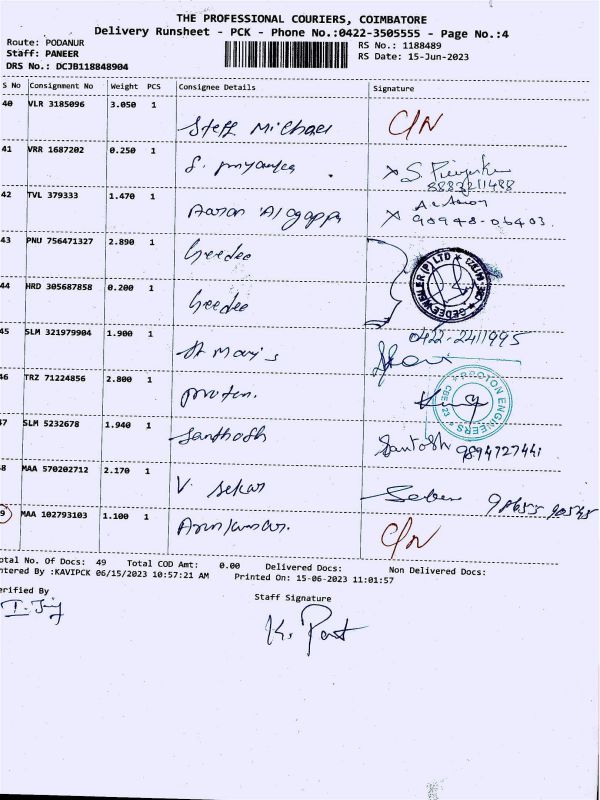 THE PROFESSIONAL COURIERS, COIMBATORE
Delivery Runsheet - PCK - Phone No.:0422-3505555 - Page No.:4
Route: PODANUR
RS No.: 1188489
Staff: PANEER
RS Date: 15-Jun-2023
DRS No.: DCJB118848904
S No Consignment No Weight PCS Consignee Details Signature
40 VLR 3185096 3.050 1 Steff Michael C/N
41 VRR 1687202 0.250 1 S. Priyanka
42 TVL 379333 1.470 1 Aaron Alagappa 90948-06403
43 PNU 756471327 2.890 1 Geedee
44 HRD 305687858 0.200 1 Geedee
GEDEE WEILER (P) LTD
0422-2411995
45 SLM 321979904 1.900 1 St Mary's
46 TRZ 71224856 2.800 1 proton.
PROTON ENGINEERS
CBE-23
47 SLM 5232678 1.940 1 Santhosh Santosh 9894727441
48 MAA 570202712 2.170 1 V. Sekar
49 MAA 102793103 1.100 1 Arunkumar. C/N
otal No. Of Docs: 49 Total COD Amt: 0.00 Delivered Docs: Non Delivered Docs:
ntered By :KAVIPCK 06/15/2023 10:57:21 AM Printed On: 15-06-2023 11:01:57
erified By
Staff Signature